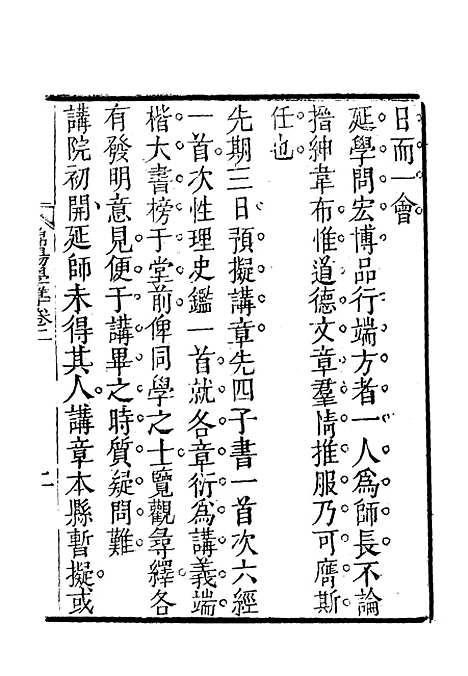 日而一會
延學問宏博品行端方者一人爲師長不論
搢紳韋布惟道德文章羣情推服乃可膺斯
任也
先期三日預擬講章先四子書一首次六經
一首次性理史鑑一首就各章衍爲講義端
楷大書榜于堂前俾同學之士覽觀尋繹各
有發明意見便于講畢之時質疑問難
講院初開延師未得其人講章本縣暫擬或
卷二
二